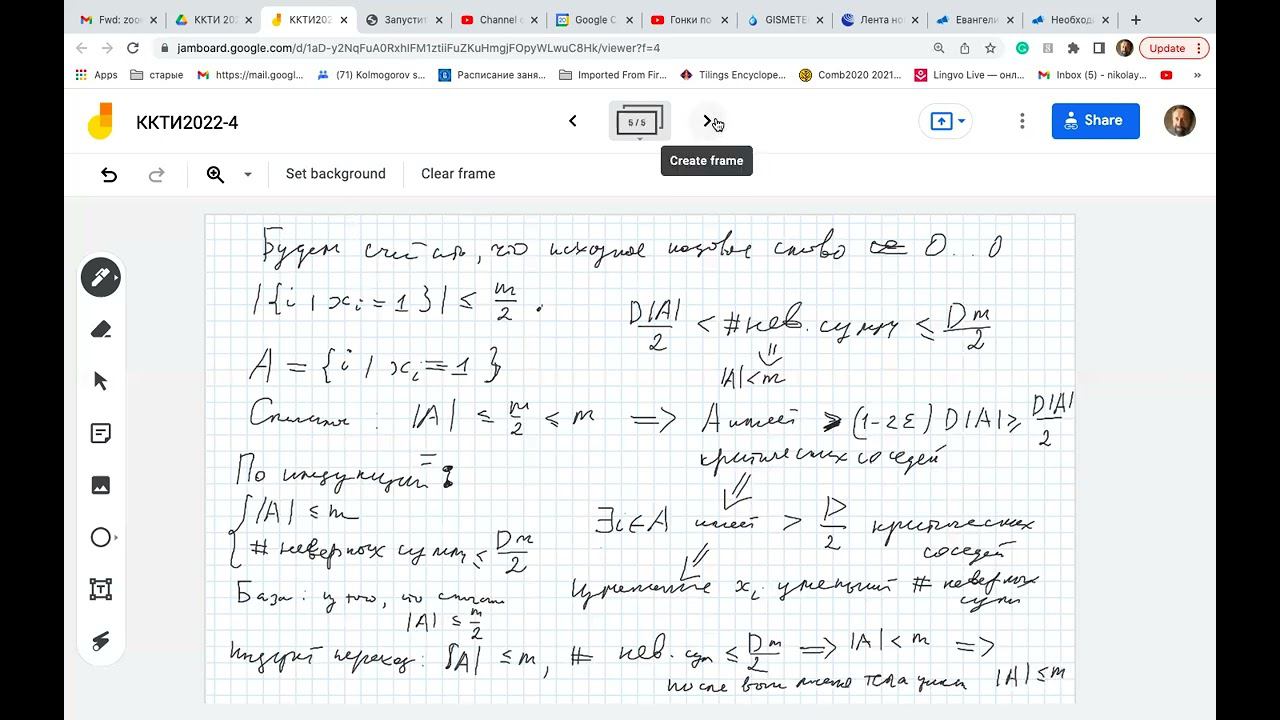 Fwd: zoo
ККТИ 202
ККТИ202
Запустит
Channel c
Google C
Гонки по
GISMETE
Лента но
Евангели
Необход
jamboard.google.com/d/1aD-y2NqFuA0RxhIFM1ztiiFuZKuHmgjFOpyWLwuC8Hk/viewer?f=4
Update
Apps
старые
https://mail.googl...
(71) Kolmogorov s...
Расписание заня...
Imported From Fir...
Tilings Encyclope...
Comb2020 2021...
Lingvo Live — онл...
Inbox (5) - nikolay...
»
ККТИ2022-4
5 / 5
Share
Create frame
Set background
Clear frame
Будем считать, что исходное кодовое слово 0..0
|{i | xᵢ = 1}| ≤ m/2.
D|A|/2 < # нев. сумм ≤ Dm/2
|A| < m
A = {i | xᵢ = 1}
|A| ≤ m/2 ≤ m ⟹ A имеет ≥ (1-2ε) D|A| ≥ D|A|/2
критических соседей
По индукции:
|A| ≤ m
# неверных сумм ≤ Dm/2
∃i∈A имеет > D/2 критических
соседей
База: из того, что
|A| ≤ m/2
xᵢ # неверных
сумм
переход: |A| ≤ m, # нев. сум ≤ Dm/2 ⟹ |A| < m ⟹
после тела цикла |A| ≤ m